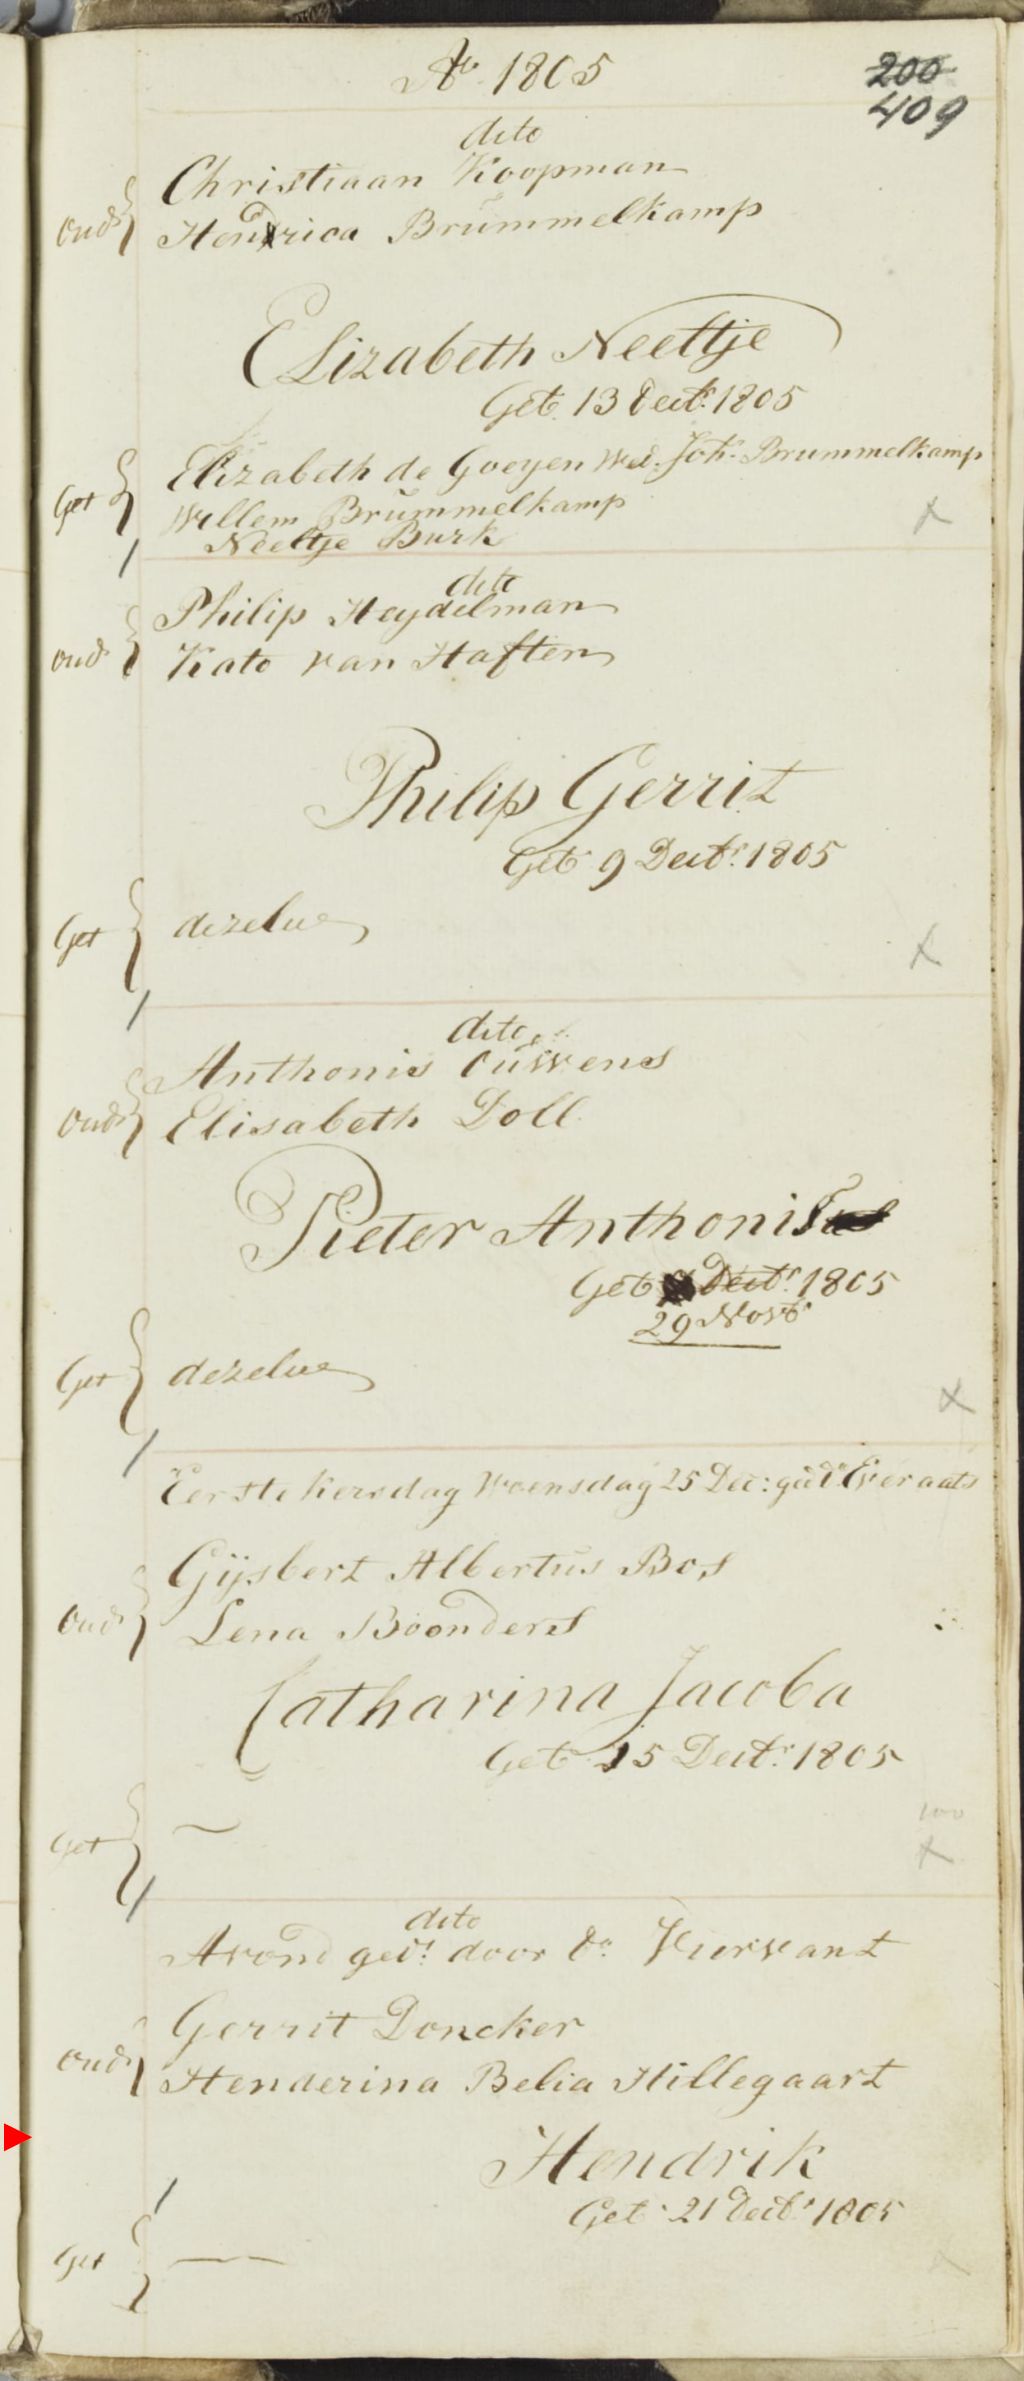 Ao 1805
200
409
dito
Christiaan Koopman
Oud.
Hendrica Brummelkamp
Elizabeth Neeltje
Geb. 13 Decbr. 1805
Elizabeth de Goeyen Wed. Joh. Brummelkamp
Get
Willem Brummelkamp
Neeltje Burk
dito
Philip Heydelman
Oud.
Kato van Haften
Philip Gerrit
Geb. 9 Decbr. 1805
Get
dezelve
dito
Anthonis Ouwens
Oud.
Elisabeth Doll
Pieter Anthonis
Geb. Decbr. 1805
29 Novb
Get
dezelve
Eerste Kersdag Woensdag 25 Dec: Everaats
Gijsbert Albertus Bos
Oud.
Lena Boonders
Catharina Jacoba
Geb. 15 Decbr. 1805
Get
dito
Avond ged. door Do. Viervant
Gerrit Doncker
Oud.
Henderina Belia Hillegaart
Hendrik
Geb. 21 Decbr. 1805
Get